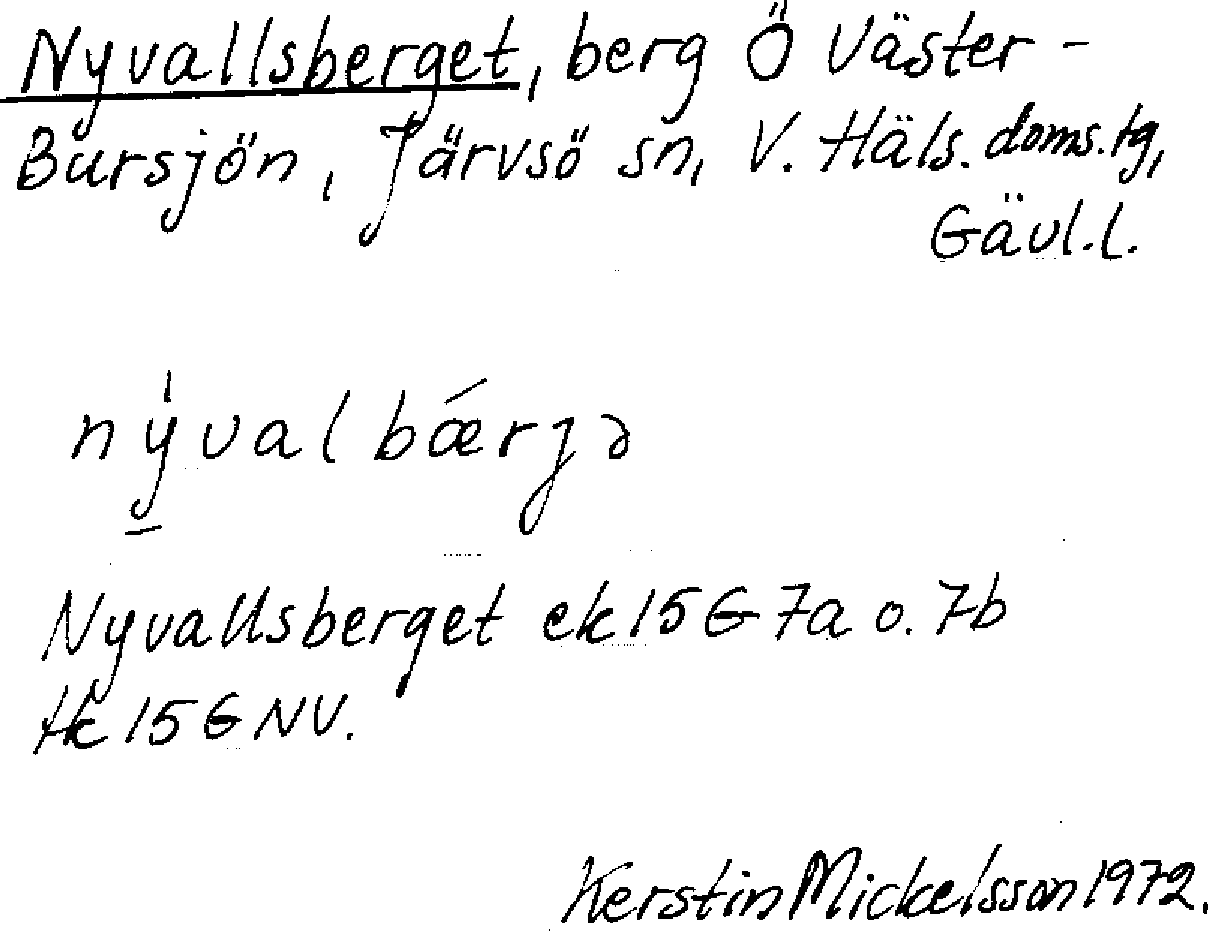 Nyvallsberget, berg Ö Väster-
Bursjön, Järvsö sn, V. Häls. doms.tg,
Gävl.l.
ný̱valbǽrȷə
Nyvallsberget ek 15 G 7a o. 7b
tk 15 G NV.
Kerstin Mickelsson 1972.